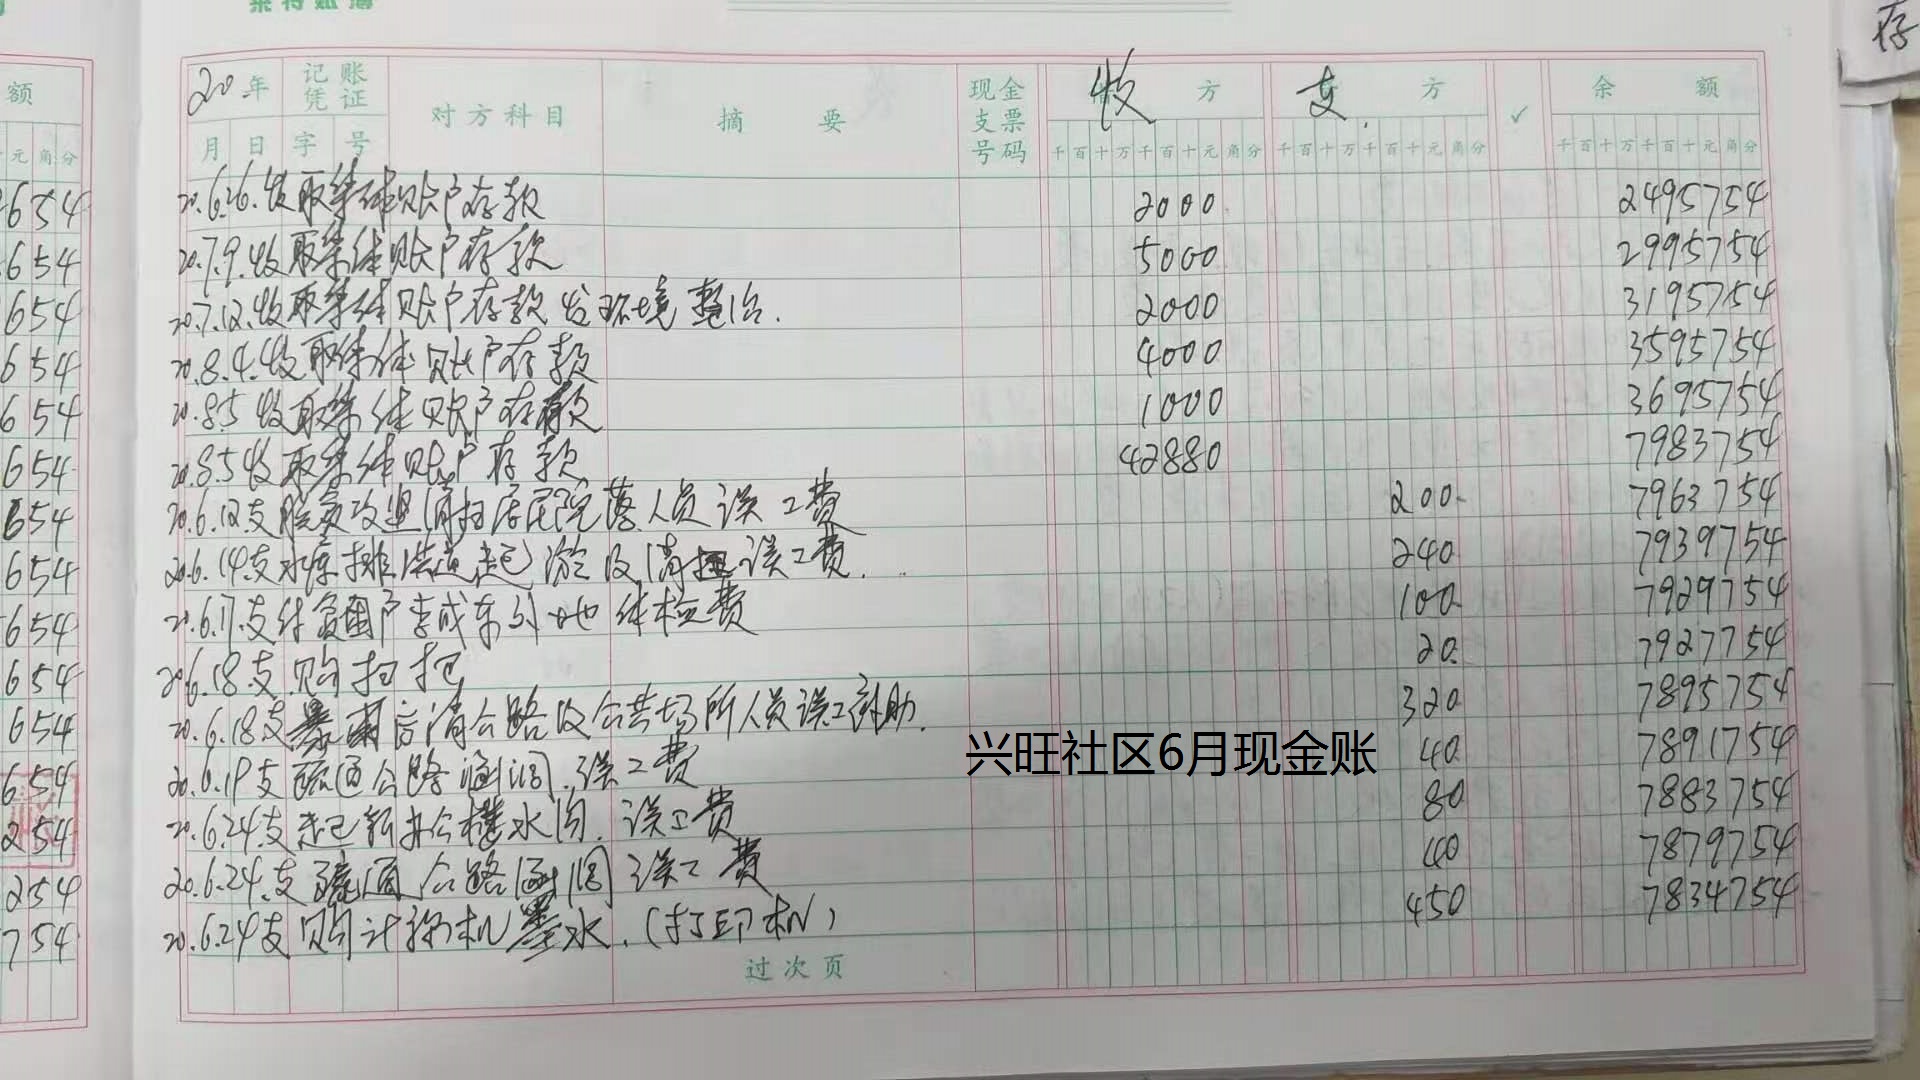 20年 记账凭证 对方科目 摘要 现金支票号码 收方 支方 ✓ 余额
月 日 字 号 千百十万千百十元角分 千百十万千百十元角分 千百十万千百十元角分
20.6.26.收取集体账户存款 2000. 2495754
20.7.9.收取集体账户存款 5000 2995754
20.7.12.收取集体账户存款发环境整治. 2000 3195754
20.8.4.收取集体账户存款 4000 3595754
20.8.5收取集体账户存款 1000 3695754
20.8.5收取集体账户存款 42880 7983754
20.6.12支脱贫攻坚清扫居民院落人员误工费 200- 7963754
20.6.14支水库排洪道起淤及清扫误工费. 240 7939754
20.6.17.支付贫困户李成东外地体检费 100- 7929754
20.6.18支购扫把 20. 7927754
20.6.18支暴雨后清公路及公共场所人员误工补助. 320 7895754
20.6.19支疏通公路涵洞.误工费 40 7891754
兴旺社区6月现金账
20.6.24支起新办公楼水沟.误工费 80 7883754
20.6.24.支疏通公路涵洞误工费 40 7879754
20.6.24支购计算机墨水.(打印机) 450 7834754
过次页
额
元角分
654
654
654
654
654
654
654
654
654
654
654
654
254
254
754
存